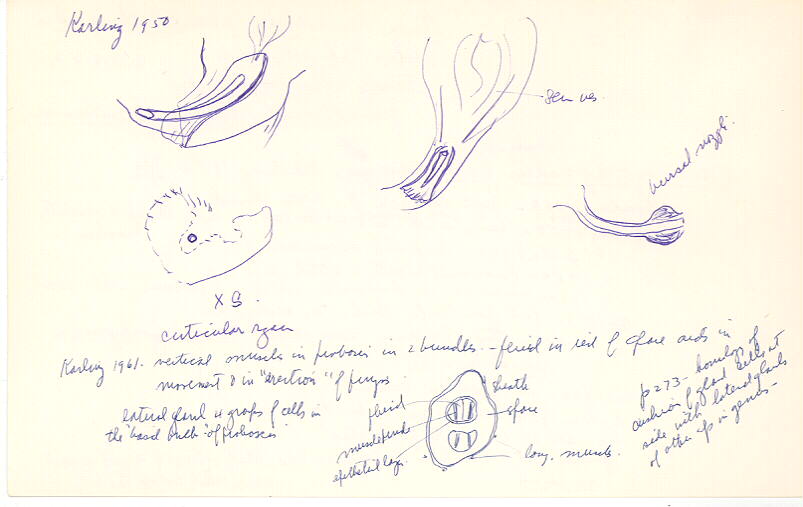 Karling 1950
sem ves.
bursal nozzle.
XS.
cuticular organ
Karling 1961. vertical muscles in proboscis in 2 bundles - fluid in rest of space aids in
movement & in "erection" of
lateral gland 4 groups of cells in
the "basal bulb" of proboscis
fluid
muscle
epithelial layer
sheath
space
long. muscles.
p 273 - homology of
cushion of gland cells at
side with lateral glands
of other sp in genus -